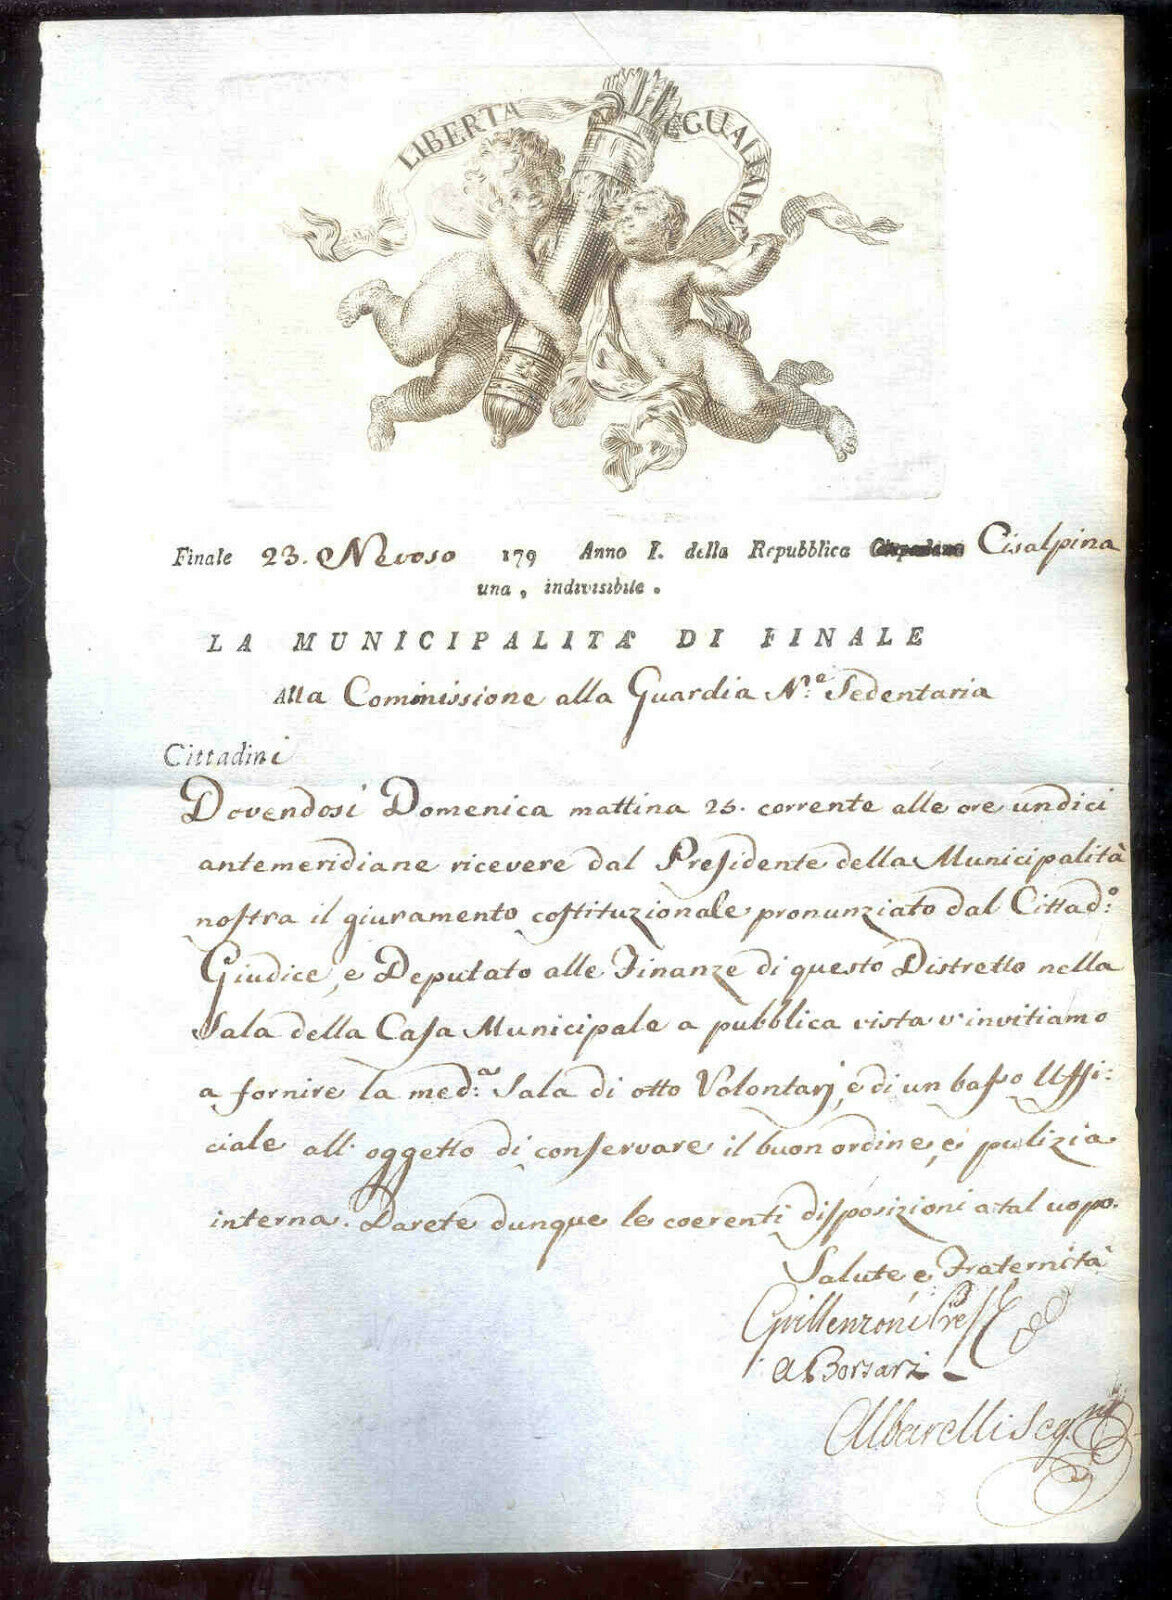 LIBERTA EGUALIANZA
Finale 23. Nevoso 179 Anno I. della Repubblica Cispadana Cisalpina
una, indivisibile.
LA MUNICIPALITA' DI FINALE
Alla Commissione alla Guardia N.le Sedentaria
Cittadini
Dovendosi Domenica mattina 25. corrente alle ore undici
antemeridiane ricevere dal Presidente della Municipalità
nostra il giuramento costituzionale pronunziato dal Cittad.o
Giudice, e Deputato alle Finanze di questo Distretto nella
Sala della Casa Municipale a pubblica vista v'invitiamo
a fornire la med.a Sala di otto Volontarj, e di un basso Uffi:
ciale all'oggetto di conservare il buon ordine, e pulizia
interna. Darete dunque le coerenti disposizioni a tal uopo.
Salute, e Fraternità
Grillenzoni Pres
A Borsari
Albarelli Seg.